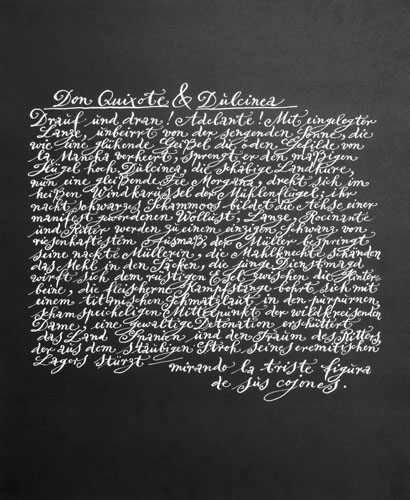 Don Quixote & Dulcinea
Drauf und dran! Adelante! Mit eingelegter
Lanze, unbeirrt von der sengenden Sonne, die
wie eine glühende Geißel die öden Gefilde von
la Mancha verheert, sprengt er den mäßigen
Hügel hoch. Dulcinea, die schäbige Landhure,
nun eine gleißende Fee Morgana, dreht sich im
heißen Windkarussel der Mühlenflügel; ihr
nacht schwarzes Schammoos bildet die Achse einer
manifest gewordenen Wollust, Lanze, Rocinante
und Ritter werden zu einem einzigen Schwanz von
riesenhaftestem Ausmaß, der Müller bespringt
seine nackte Müllerin, die Mahlknechte schänden
das Mehl in den Säcken, die junge Dienstmagd
wirft sich dem rüstigen Esel zwischen die Hinter-
beine, die fleischerne Kampfstange bohrt sich mit
einem titanischen Schmatzlaut in den purpurnen,
schamspeicheligen Mittelpunkt der wild kreisenden
Dame, eine gewaltige Detonation erschüttert
das Land Spanien und den Traum des Ritters,
der aus dem staubigen Stroh seines eremitschen
Lagers stürzt
mirando la triste figura
de sus cojones.